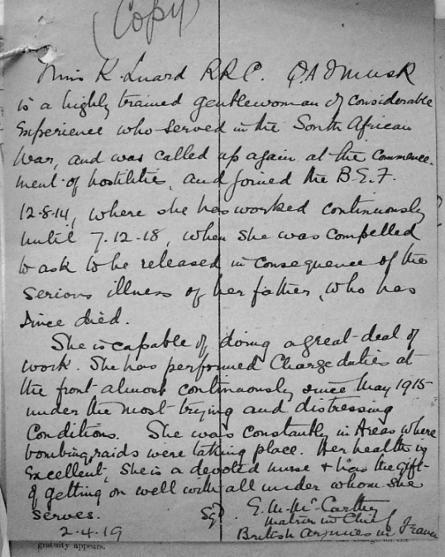 (Copy)
Miss K. Luard R.R.C. Q.A.I.M.N.S.R
is a highly trained gentlewoman of considerable
experience who served in the South African
War, and was called up again at the commence-
ment of hostilities, and joined the B.E.F.
12-8-14, where she has worked continuously
until 7.12.18, when she was compelled
to ask to be released in consequence of the
serious illness of her father, who has
since died.
She is capable of doing a great deal of
work. She has performed Charge duties at
the front almost continuously since May 1915
under the most trying and distressing
Conditions. She was constantly in Areas where
bombing raids were taking place. Her health is
Excellent, She is a devoted nurse & has the gift
of getting on well with all under whom she
serves.
Sgd E. M. McCarthy
Matron in Chief
2-4-19
British Armies in France
gratuity appears.